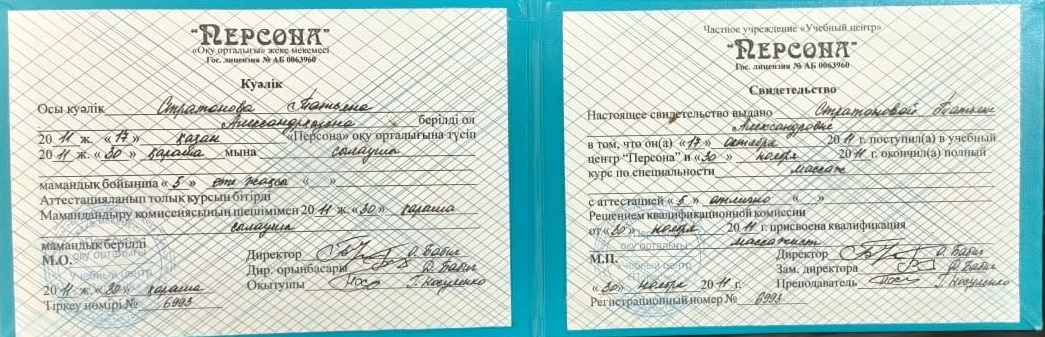 "ПЕРСОНА"
«Оқу орталығы» жеке мекемесі
Гос. лицензия № АБ 0063960
Куәлік
Осы куәлік Стратонова Татьяна
Александровна берілді ол
20 11 ж. «17» қазан «Персона» оқу орталығына түсіп
20 11 ж. «30» қараша мына сылаушы
мамандық бойынша « 5 » өте жақсы « »
Аттестацияланып толық курсын бітірді
Мамандандыру комиссиясының шешімімен 20 11 ж. «30» қараша
сылаушы
мамандық берілді
М.О.
Директор О. Бабич
Дир. орынбасары О. Бабич
Оқытушы Г. Носуленко
20 11 ж. «30» қараша
Тіркеу нөмірі № 6993
оқу орталығы
Учебный центр
Частное учреждение «Учебный центр»
"ПЕРСОНА"
Гос. лицензия № АБ 0063960
Свидетельство
Настоящее свидетельство выдано Стратоновой Татьяне
Александровне
в том, что он(а) «17» октября 20 11 г. поступил(а) в учебный
центр "Персона" и «30» ноября 20 11 г. окончил(а) полный
курс по специальности массаж
с аттестацией « 5 » отлично « »
Решением квалификационной комиссии
от «30» ноября 20 11 г. присвоена квалификация
массажист
М.П.
Директор О. Бабич
Зам. директора О. Бабич
Преподаватель Г. Носуленко
« 30 » ноября 20 11 г.
Регистрационный номер № 6993
оқу орталығы
Учебный центр